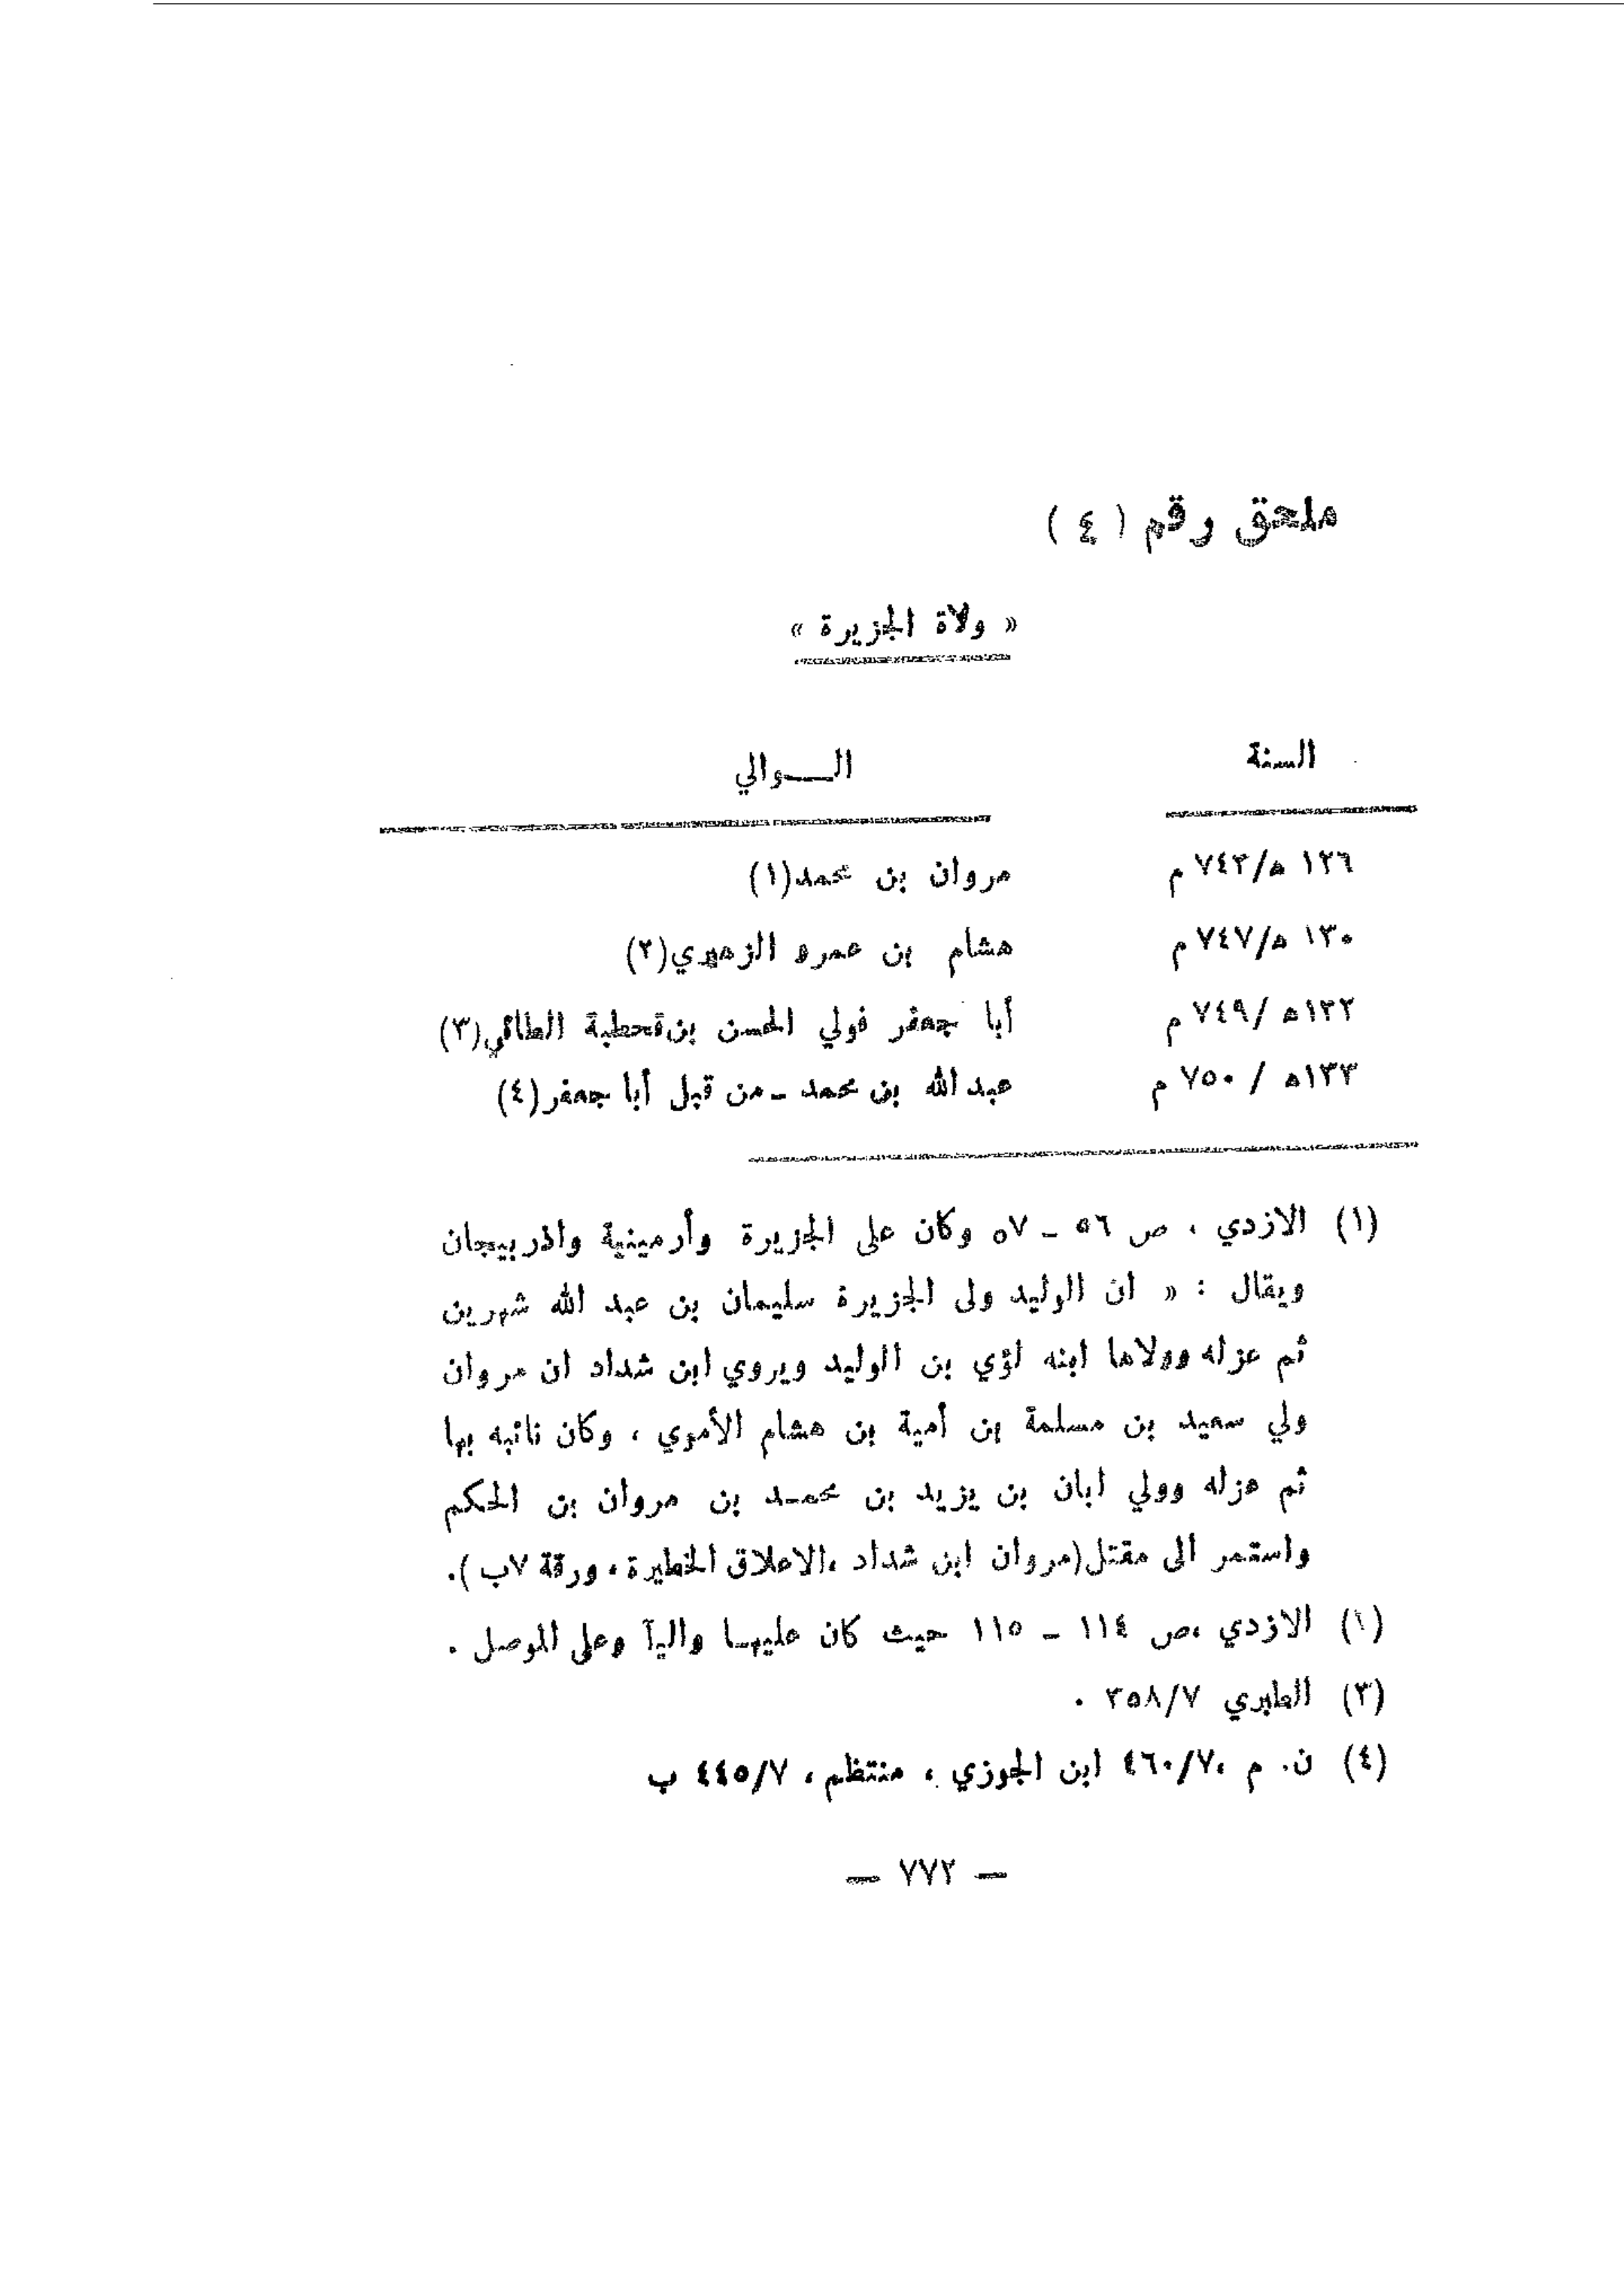 ملحق رقم ( ٤ )
« ولاة الجزيرة »
السنة الـــوالي
١٢٦ ه/٧٤٣ م مروان بن محمد(١)
١٣٠ ه/٧٤٧ م هشام بن عمرو الزهيري(٢)
١٣٢ه /٧٤٩ م أبا جعفر فولي الحسن بن قحطبة الطائي(٣)
١٣٣ه / ٧٥٠ م عبد الله بن محمد ـ من قبل أبا جعفر(٤)
(١) الازدي ، ص ٥٦ ـ ٥٧ وكان على الجزيرة وأرمينية واذربيجان
ويقال : « ان الوليد ولى الجزيرة سليمان بن عبد الله شهرين
ثم عزله وولاها ابنه لؤي بن الوليد ويروي ابن شداد ان مروان
ولي سعيد بن مسلمة بن أمية بن هشام الأموي ، وكان نائبه بها
ثم عزله وولي ابان بن يزيد بن محمـد بن مروان بن الحكم
واستمر الى مقتل(مروان ابن شداد ،الاعلاق الخطيرة ، ورقة ٧ب ).
(١) الازدي ،ص ١١٤ ـ ١١٥ حيث كان عليهـا واليآ وعلى الموصل .
(٣) الطبري ٣٥٨/٧ .
(٤) ن. م ،٤٦٠/٧ ابن الجوزي ، منتظم ، ٤٤٥/٧ ب
— ٧٧٢ —